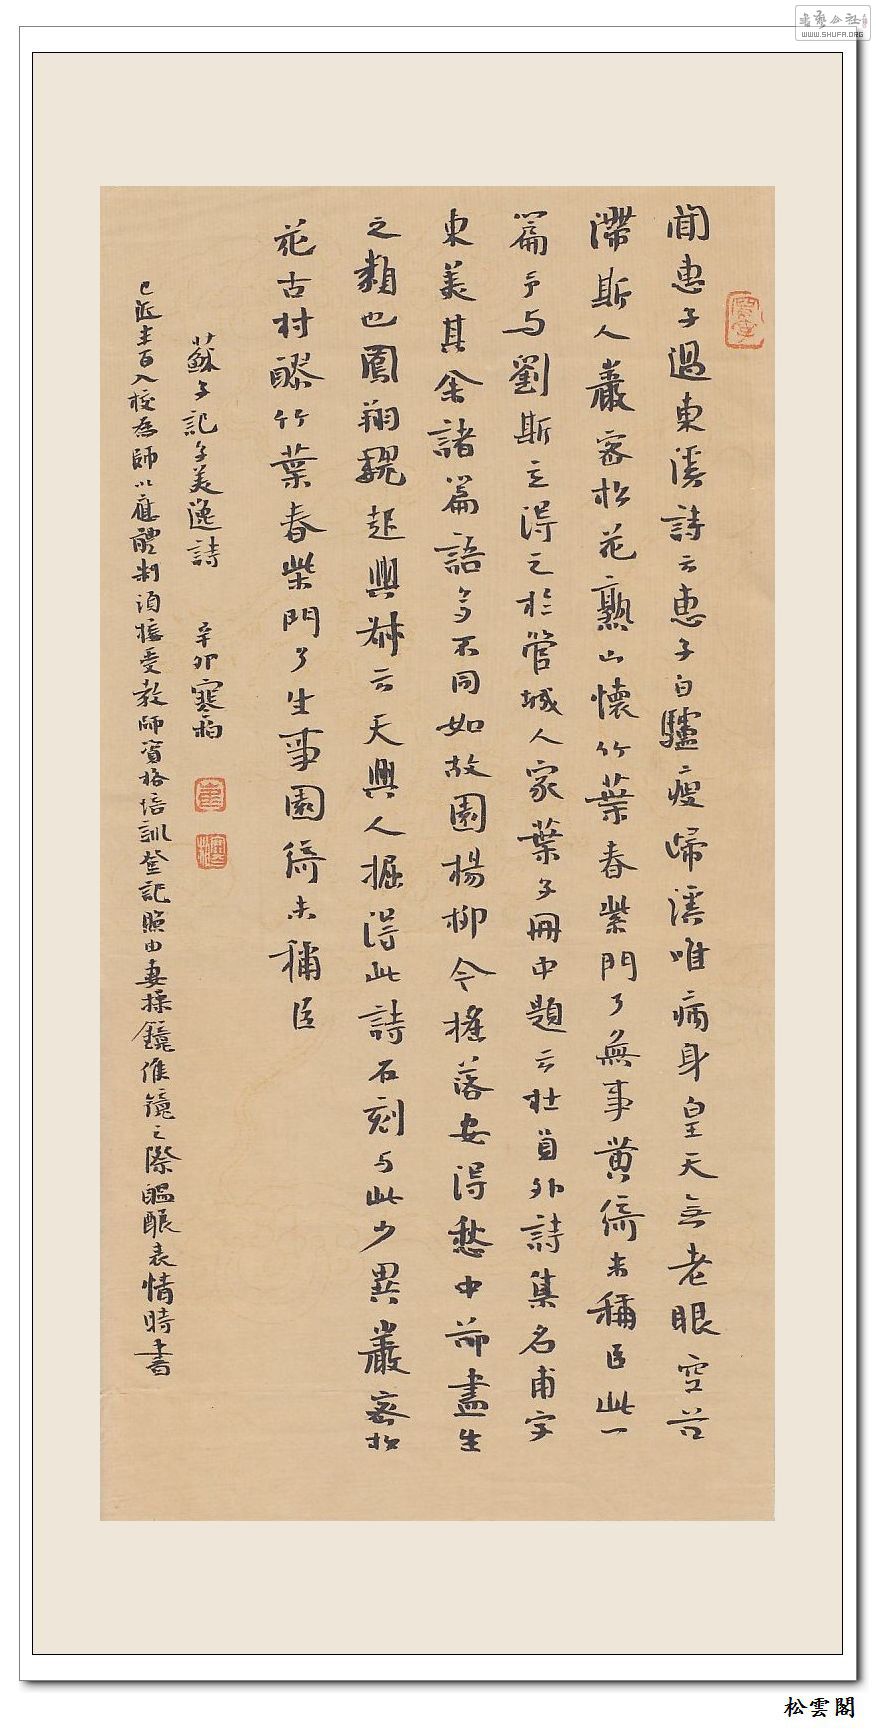 书艺公社
WWW.SHUFA.ORG
聞惠子過東溪詩云惠子白驢瘦歸溪唯病身皇天無老眼空谷
滯斯人巖密松花熟山懷竹葉春柴門了無事黃綺未稱臣此一
篇予与劉斯立得之於管城人家葉子冊中題云杜員外詩集名甫字
東美其余諸篇語多不同如故園楊柳今搖落安得愁中却盡生
之類也鳳翔魏起興叔云天興人掘得此詩石刻与此少異巖密松
花古村醪竹葉春柴門了生事園綺未稱臣
蘇子記子美逸詩 辛卯寒柏
已近半百入校為師以應體制須接受教師資格培訓登記照由妻操鏡催鏡之際醞釀表情時書
松雲閣